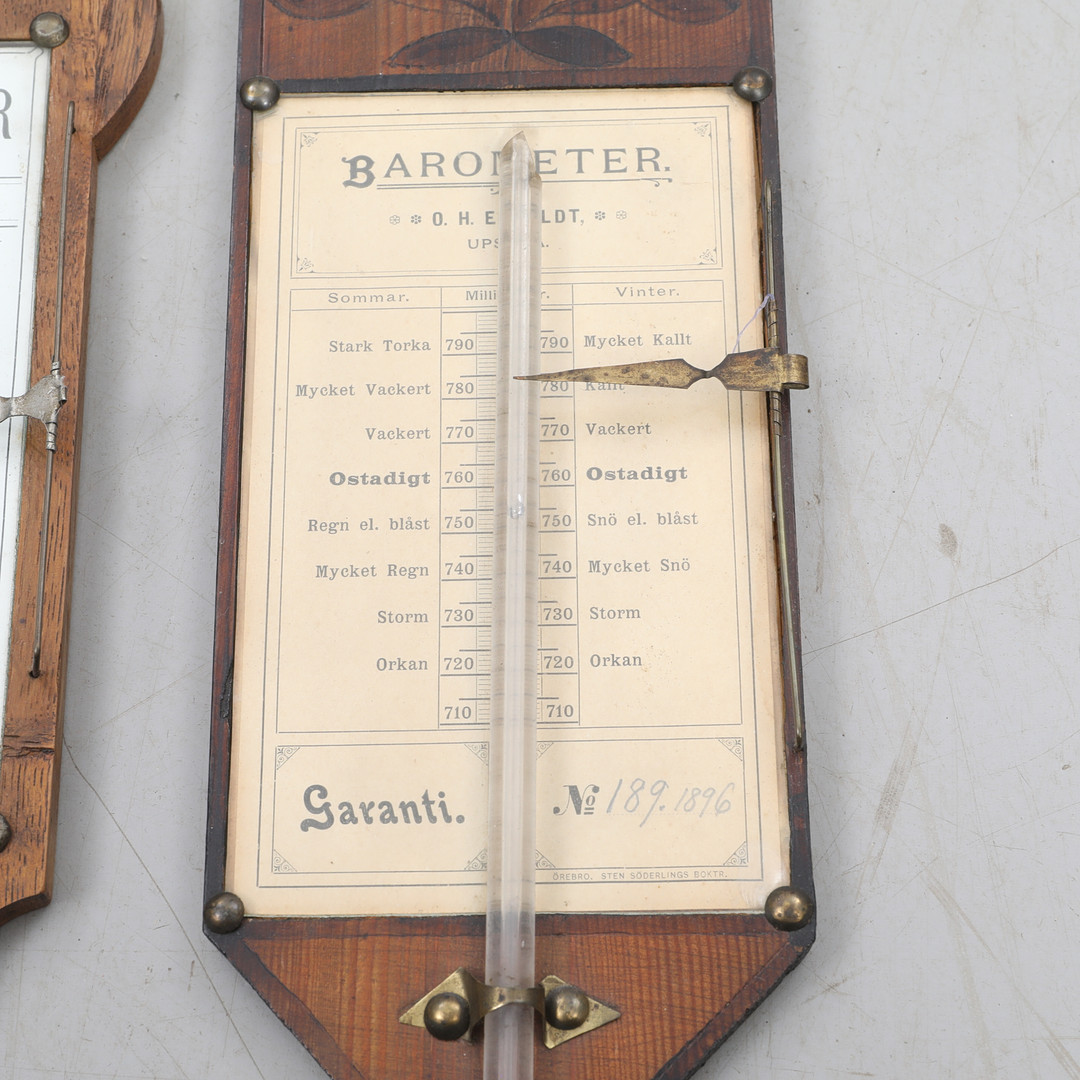 R
BAROMETER.
O. H. E LDT,
UPS A.
Sommar. Milli r. Vinter.
Stark Torka 790 790 Mycket Kallt
Mycket Vackert 780 780 Kallt
Vackert 770 770 Vackert
Ostadigt 760 760 Ostadigt
Regn el. blåst 750 750 Snö el. blåst
Mycket Regn 740 740 Mycket Snö
Storm 730 730 Storm
Orkan 720 720 Orkan
710 710
Garanti. No 189. 1896
ÖREBRO. STEN SÖDERLINGS BOKTR.